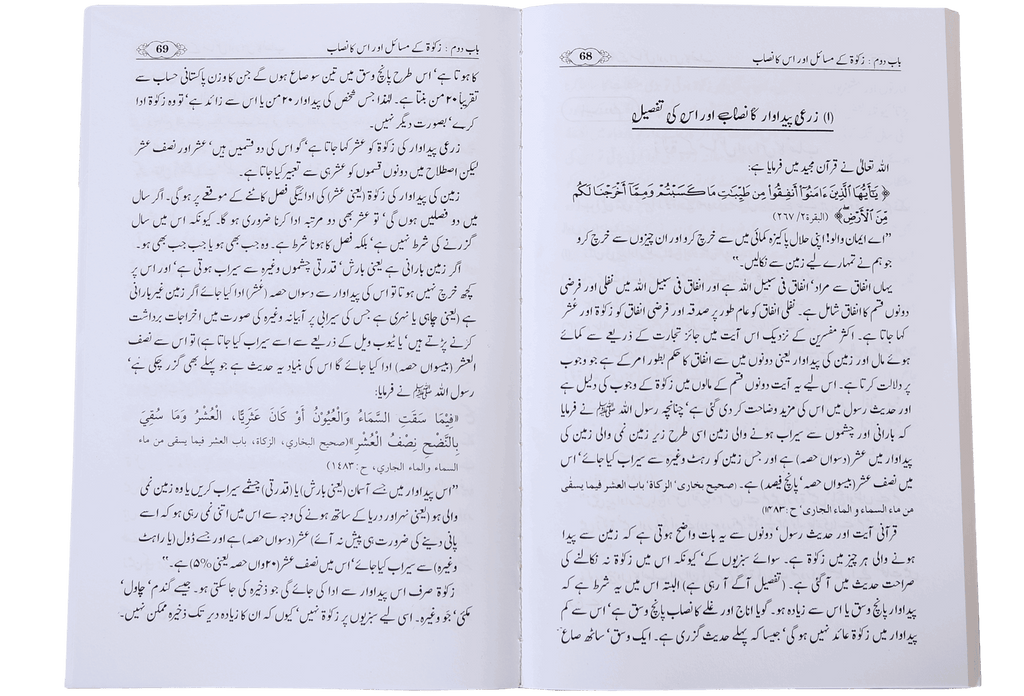 باب دوم : زکوٰۃ کے مسائل اور اس کا نصاب
68
(۱) زرعی پیداوار کا نصاب اور اس کی تفصیل
اللہ تعالیٰ نے قرآن مجید میں فرمایا ہے:
﴿ يَٰٓأَيُّهَا ٱلَّذِينَ ءَامَنُوٓا۟ أَنفِقُوا۟ مِن طَيِّبَٰتِ مَا كَسَبْتُمْ وَمِمَّآ أَخْرَجْنَا لَكُم
مِّنَ ٱلْأَرْضِ ۖ ﴾ (البقرۃ۲/ ۲۶۷)
’’اے ایمان والو! اپنی حلال پاکیزہ کمائی میں سے خرچ کرو اور ان چیزوں سے خرچ کرو
جو ہم نے تمہارے لیے زمین سے نکالیں۔‘‘
یہاں انفاق سے مراد‘ انفاق فی سبیل اللہ ہے اور انفاق فی سبیل اللہ میں نفلی اور فرضی
دونوں قسم کا انفاق شامل ہے۔ نفلی انفاق کو عام طور پر صدقہ اور فرضی انفاق کو زکوٰۃ اور عشر
کہا جاتا ہے۔ اکثر مفسرین کے نزدیک اس آیت میں جائز تجارت کے ذریعے سے کمائے
ہوئے مال اور زمین کی پیداوار یعنی دونوں میں سے انفاق کا حکم بطور امر کے ہے جو وجوب
پر دلالت کرتا ہے۔ اس لیے یہ آیت دونوں قسم کے مالوں میں زکوٰۃ کے وجوب کی دلیل ہے
اور حدیث رسول میں اس کی مزید وضاحت کر دی گئی ہے‘ چنانچہ رسول اللہ ﷺ نے فرمایا
کہ بارانی اور چشموں سے سیراب ہونے والی زمین اسی طرح زیر زمین نمی والی زمین کی
پیداوار میں عشر (دسواں حصہ) ہے اور جس زمین کو رہٹ وغیرہ سے سیراب کیا جائے‘ اس
میں نصف عشر (بیسواں حصہ‘ پانچ فیصد) ہے۔ (صحیح بخاری‘ الزکاۃ‘ باب العشر فیما یسقٰی
من ماء السماء و الماء الجاری‘ ح:۱۴۸۳)
قرآنی آیت اور حدیث رسول‘ دونوں سے یہ بات واضح ہوتی ہے کہ زمین سے پیدا
ہونے والی ہر چیز میں زکوٰۃ ہے۔ سوائے سبزیوں کے‘ کیونکہ اس میں زکوٰۃ نہ نکالنے کی
صراحت حدیث میں آ گئی ہے۔ (تفصیل آگے آ رہی ہے) البتہ اس میں یہ شرط ہے کہ
پیداوار پانچ وسق یا اس سے زیادہ ہو۔ گویا اناج اور غلے کا نصاب پانچ وسق ہے‘ اس سے کم
پیداوار میں زکوٰۃ عائد نہیں ہو گی‘ جیسا کہ پہلے حدیث گزری ہے۔ ایک وسق‘ ساٹھ صاع
باب دوم : زکوٰۃ کے مسائل اور اس کا نصاب
69
کا ہوتا ہے‘ اس طرح پانچ وسق میں تین سو صاع ہوں گے جن کا وزن پاکستانی حساب سے
تقریباً ۲۰ من بنتا ہے۔ لہٰذا جس شخص کی پیداوار ۲۰ من یا اس سے زائد ہے‘ تو وہ زکوٰۃ ادا
کرے‘ بصورت دیگر نہیں۔
زرعی پیداوار کی زکوٰۃ کو عشر کہا جاتا ہے‘ گو اس کی دو قسمیں ہیں‘ عشر اور نصف عشر
لیکن اصطلاح میں دونوں قسموں کو عشر ہی سے تعبیر کیا جاتا ہے۔
زمین کی پیداوار کی زکوٰۃ (یعنی عشر) کی ادائیگی فصل کاٹنے کے موقعے پر ہو گی۔ اگر سال
میں دو فصلیں ہوں گی‘ تو عشر بھی دو مرتبہ ادا کرنا ضروری ہو گا۔ کیونکہ اس میں سال
گزرنے کی شرط نہیں ہے‘ بلکہ فصل کا ہونا شرط ہے۔ وہ جب بھی ہو یا جب جب بھی ہو۔
اگر زمین بارانی ہے یعنی بارش‘ قدرتی چشموں وغیرہ سے سیراب ہوتی ہے‘ اور اس پر
کچھ خرچ نہیں ہوتا تو اس کی پیداوار سے دسواں حصہ (عُشر) ادا کیا جائے اگر زمین غیر بارانی
ہے (یعنی چاہی یا نہری ہے جس کی سیرابی پر آبیانہ وغیرہ کی صورت میں اخراجات برداشت
کرنے پڑتے ہیں‘ یا ٹیوب ویل کے ذریعے سے اسے سیراب کیا جاتا ہے) تو اس سے نصف
العشر (بیسواں حصہ) ادا کیا جائے گا اس کی بنیاد یہ حدیث ہے جو پہلے بھی گزر چکی ہے‘
رسول اللہ ﷺ نے فرمایا:
«فِيمَا سَقَتِ السَّمَاءُ وَالْعُيُونُ أَوْ كَانَ عَثَرِيًّا، الْعُشْرُ وَمَا سُقِيَ
بِالنَّضْحِ نِصْفُ الْعُشْرِ»(صحیح البخاري، الزکاة، باب العشر فیما یسقی من ماء
السماء والماء الجاري، ح:۱۴۸۳)
’’اس پیداوار میں جسے آسمان (یعنی بارش) یا (قدرتی) چشمے سیراب کریں یا وہ زمین نمی
والی ہو (یعنی نہر اور دریا کے ساتھ ہونے کی وجہ سے اس میں اتنی نمی رہی ہو کہ اسے
پانی دینے کی ضرورت ہی پیش نہ آئے) عشر (دسواں حصہ) ہے اور جسے ڈول (یا راہٹ
وغیرہ) سے سیراب کیا جائے‘ اس میں نصف عشر (۲۰واں حصہ یعنی ۵%) ہے۔‘‘
زکوٰۃ صرف اس پیداوار سے ادا کی جائے گی جو ذخیرہ کی جا سکتی ہو۔ جیسے گندم‘ چاول‘
مکئی‘ جَو وغیرہ۔ اسی لیے سبزیوں پر زکوٰۃ نہیں‘ کیوں کہ ان کا زیادہ دیر تک ذخیرہ ممکن نہیں۔